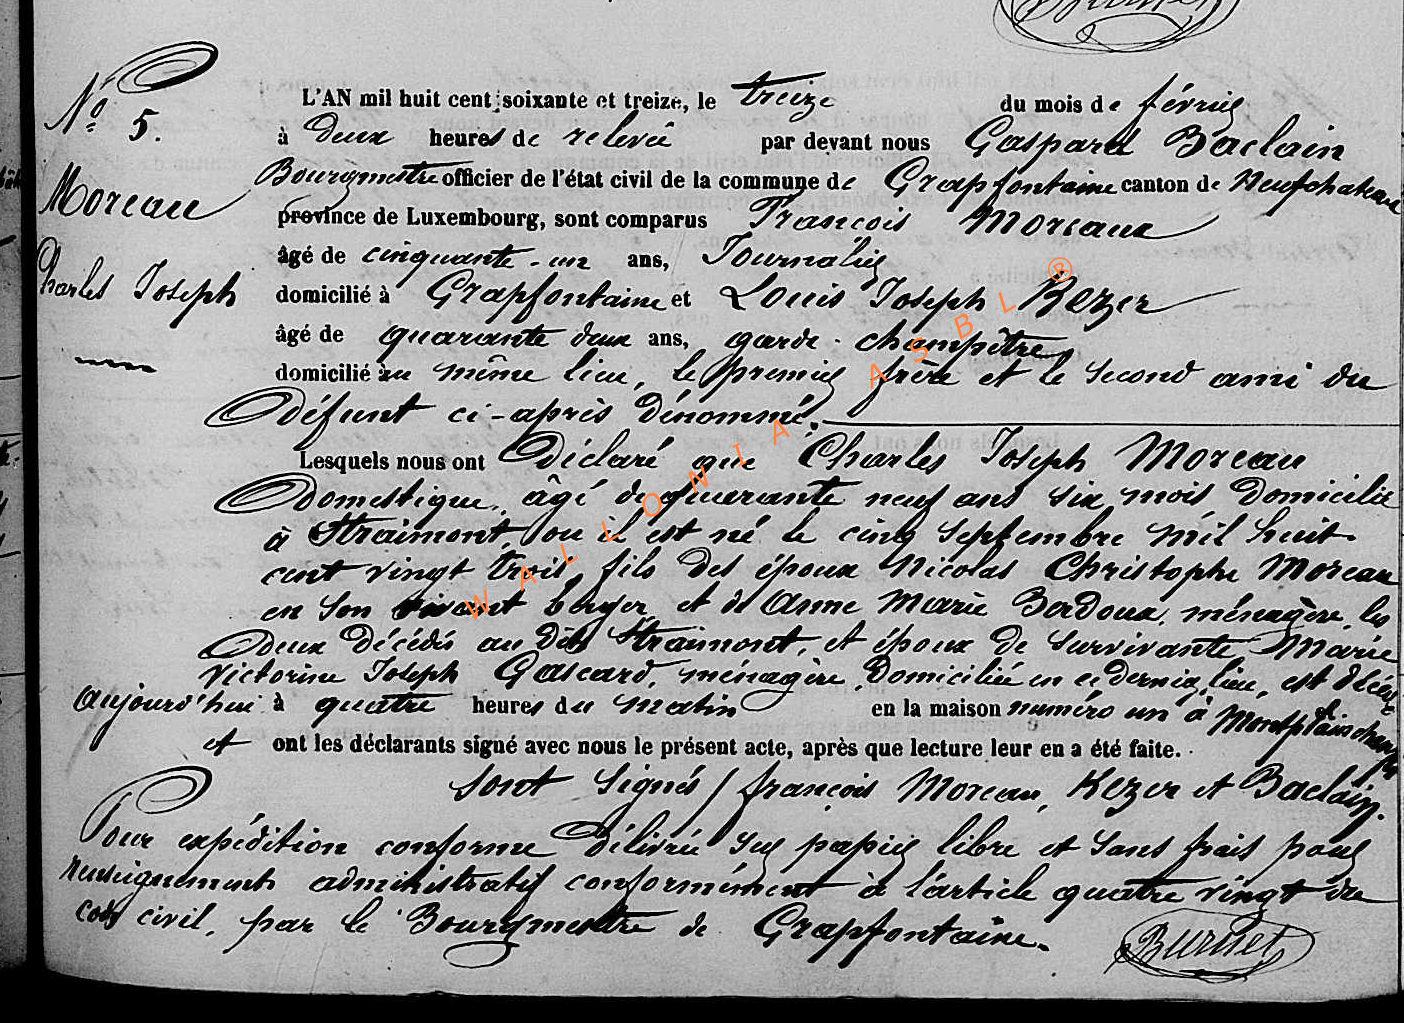 N° 5.
Moreau
Charles Joseph
L'AN mil huit cent soixante et treize, le treize du mois de février
à deux heures de relevée par devant nous Gaspard Baclain
Bourgmestre officier de l'état civil de la commune de Grapfontaine canton de Neufchateau
province de Luxembourg, sont comparus François Moreaux
âgé de cinquante-un ans, Journalier
domicilié à Grapfontaine et Louis Joseph Kezer
âgé de quarante deux ans, garde-champêtre
domicilié au même lieu, le premier frère et le second ami du
défunt ci-après dénommé.
Lesquels nous ont Déclaré que Charles Joseph Moreau
domestique, âgé de quarante neuf ans six mois domicilié
à Straimont, ou il est né le cinq Septembre mil huit
cent vingt trois, fils des époux Nicolas Christophe Moreau
en son vivant berger et de Anne Marie Bodoux, ménagère, les
deux décédés au dit Straimont, et époux de survivante Marie
Victorine Joseph Gascard, ménagère, domiciliée en ce dernier lieu, est décédé
aujourd'hui à quatre heures du matin en la maison numéro un à Montplainchamps
et ont les déclarants signé avec nous le présent acte, après que lecture leur en a été faite.
Sont signés / françois Moreau, Kezer et Baclain.
Pour expédition conforme délivrée sur papier libre et sans frais pour
renseignements administratif conformément à l'article quatre vingt du
code civil, par le Bourgmestre de Grapfontaine.
Burnet
WALLONIA ASBL ®